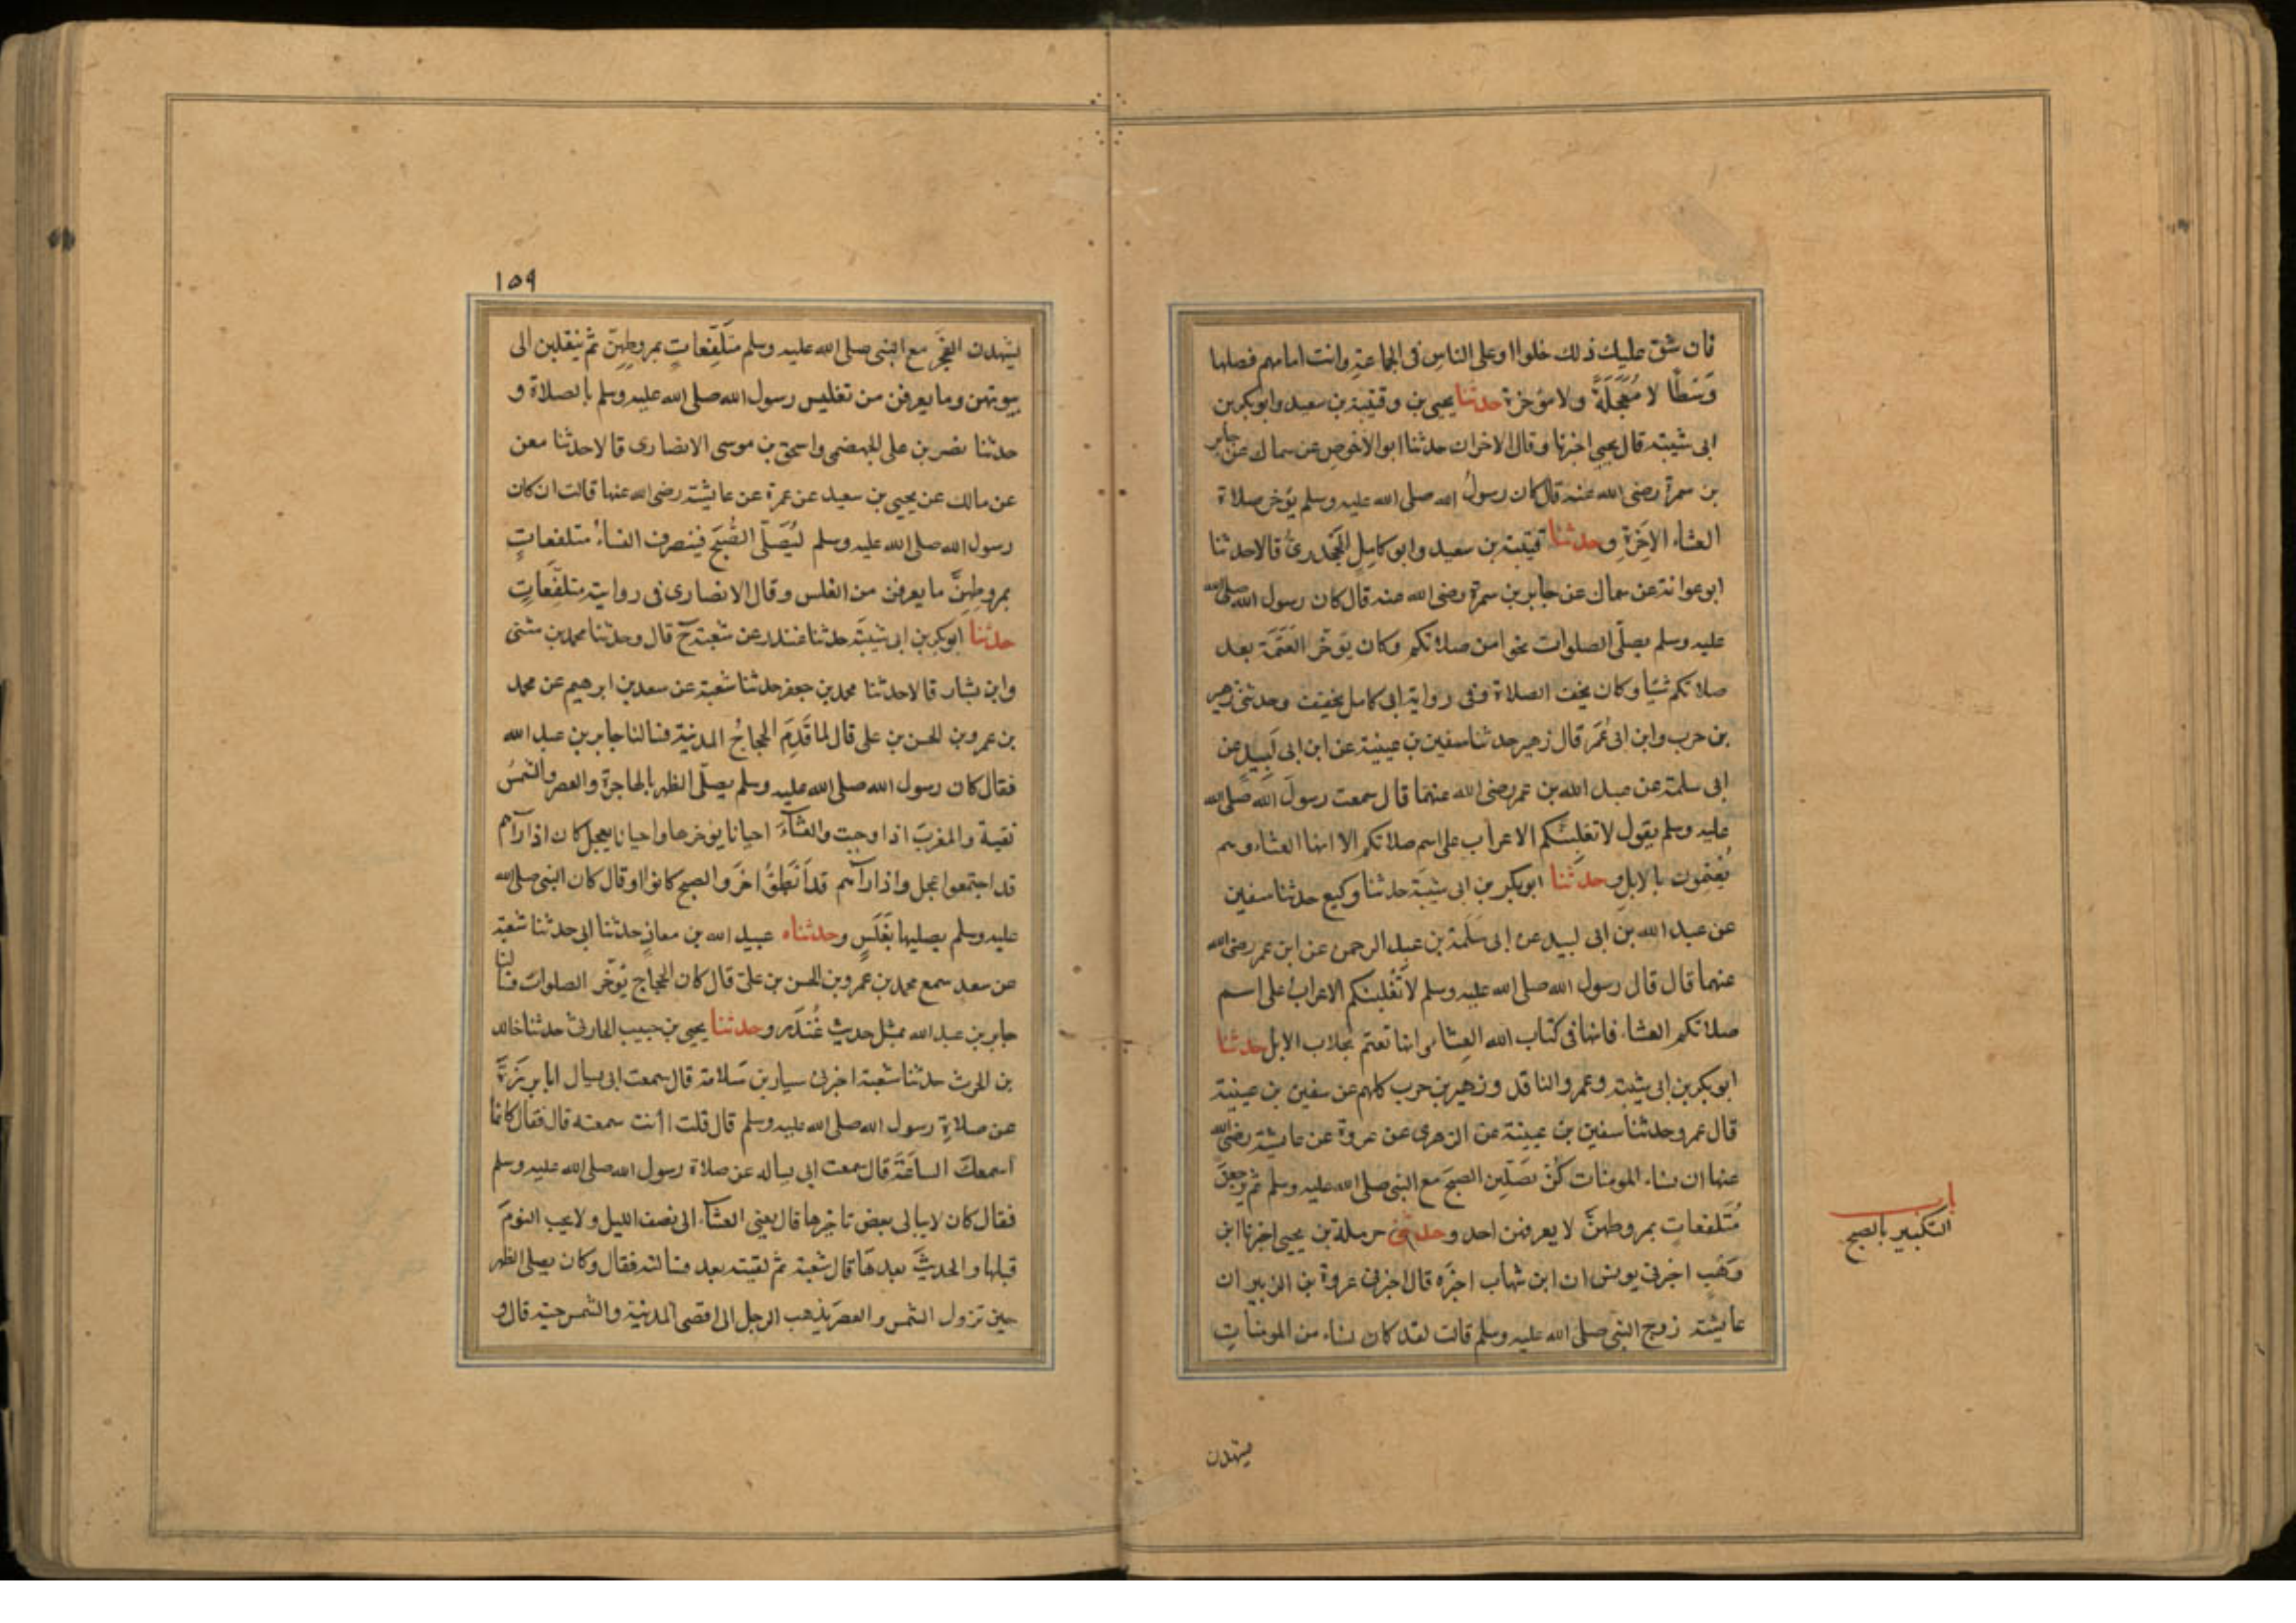 فان شق عليك ذلك خلوا او على الناس فى الجماعةِ وانت امامهم فصلها
وَسَطًا لا مُعَجَلَةً ولا مؤخرة حدثنا يحيى بن وقتيبة بن سعيد وابو بكر بن
ابى شيبة قال يحيى اخبرنا وقال الاخران حدثنا ابو الاخوص عن سماك عن جابر
بن سمرة رضى الله عنه قال كان رسولُ الله صلى الله عليه وسلم يؤخر صلاة
العشاء الاَخِرَةِ وحدثنا قتيبة بن سعيد وابو كامِلٍ الجَحدرىُّ قالا حدثنا
ابو عوانة عن سماك عن جابر بن سمرة رضى الله عنه قال كان رسول الله صلى الله
عليه وسلم يصلّى الصلوات نحوا من صلاتكم وكان يؤخّر العَتَمَةَ بعد
صلاتكم شيًا وكان يخف الصلاة وفى رواية ابى كامل يخفف وحدثنى زهير
بن حرب وابن ابى عُمَر قال زهير حدثنا سفين بن عيينة عن ابن ابى لَبيدٍ عن
ابى سلمة عن عبد الله بن عمر رضى الله عنهما قال سمعت رسولَ الله صلى الله
عليه وسلم يقول لا تغلبنّكم الاعراب على اسم صلاتكم الا انها العشاء وهم
يُعْتِمُون بالابل وحدثَنا ابو بكر بن ابى شيبَة حدثنا وكيع حدثنا سفين
عن عبد الله بن ابى لبيد عن ابى سَلَمة بن عبد الرحمن عن ابن عمر رضى الله
عنهما قال قال رسول الله صلى الله عليه وسلم لا تَغْلبنكم الاعرابُ على اسم
صلاتكم العشاء فانها فى كتاب الله العِشاء وانها تعتم بحِلاب الابل حدثنا
ابو بكر بن ابى شيبة وعمرو الناقد وزهير بن حرب كلهم عن سفين بن عيينة
قال عمرو حدثنا سفين بن عيينة عن الزهرى عن عروة عن عايشة رضى الله
عنها ان نساء المومنات كُنّ يصَلّين الصبحَ مع النبى صلى الله عليه وسلم ثم يرجعنَ
مُتَلفعاتٍ بمروطهنَّ لا يعرفهن احد وحدثنى حرملة بن يحيى اخبرنا ابن
وَهْبٍ اخبرنى يونس ان ابن شهاب اخبَره قال اخبرنى عروة بن الزبير ان
عايشة زوج النبى صلى الله عليه وسلم قالت لقد كان نساء من المومناتِ
باب
التكبير بالصبح
يشهدن
١٥٩
يشهدن الفجرَ مع النبى صلى الله عليه وسلم متَلَفِّعاتٍ بمروطِهِنّ ثم ينقلبن الى
بيوتهن وما يعرفن من تغليس رسول الله صلى الله عليه وسلم بالصلاة و
حدثنا نصر بن على الجهضمى واسحق بن موسى الانصارى قالا حدثنا معن
عن مالك عن يحيى بن سعيد عن عمرة عن عايشة رضى الله عنها قالت ان كان
رسول الله صلى الله عليه وسلم ليُصَلّى الصُّبحَ فينصرف النساءُ متلفعاتٍ
بمروطِهنَّ ما يعرفن من الغلس وقال الانصارى فى روايته متلفّعَاتٍ
حدثنا ابو بكر بن ابى شيبَة حدثنا غندر عن شعبة ح قال وحدثنا محمد بن مثنى
وابن بشار قالا حدثنا محمد بن جعفر حدثنا شعبة عن سعد بن ابرهيم عن محمد
بن عمرو بن الحسن بن على قال لما قَدِمَ الحجاجُ المدينة فسالنا جابر بن عبد الله
فقال كان رسول الله صلى الله عليه وسلم يصلّى الظهر بالهاجرة والعصر والشمسُ
نقية والمغربَ اذا وجبت والعشآءَ احيانا يؤخرها واحيانا يعجل كان اذا رآهم
قد اجتمعوا عجل واذا رآهم قد اَبْطئُوا اخرَ والصبح كانوا او قال كان النبى صلى الله
عليه وسلم يصليها بغَلَسٍ وحدثناه عبيد الله بن معاذٍ حدثنا ابى حدثنا شعبَة
عن سعد سمع محمد بن عمرو بن الحسن بن على قال كان الحجاج يُؤخّر الصلوات فسالنا
جابر بن عبد الله بمثل حديثِ غُنْدَرٍ وحدثنا يحيى بن حبيب الحارثى حدثنا خالد
بن الحرث حدثنا شعبة اخبرنى سيار بن سَلامة قال سمعت ابى يسال ابا بَرْزَةَ
عن صلاةِ رسول الله صلى الله عليه وسلم قال قلت اانت سمعته قال فقال كانما
اسمعكَ الساعَةَ قال سمعت ابى يساله عن صلاة رسول الله صلى الله عليه وسلم
فقال كان لا يبالى بعضَ تاخيرها قال يعنى العشآء الى نصف الليل ولا يحب النومَ
قبلها والحديثَ بعدهَا قال شعبة ثم لقيته بعد فسالته فقال وكان يصلى الظهر
حين تزول الشمس والعصرَ يذهب الرجل الى اقصى المدينة والشمس حية قال و